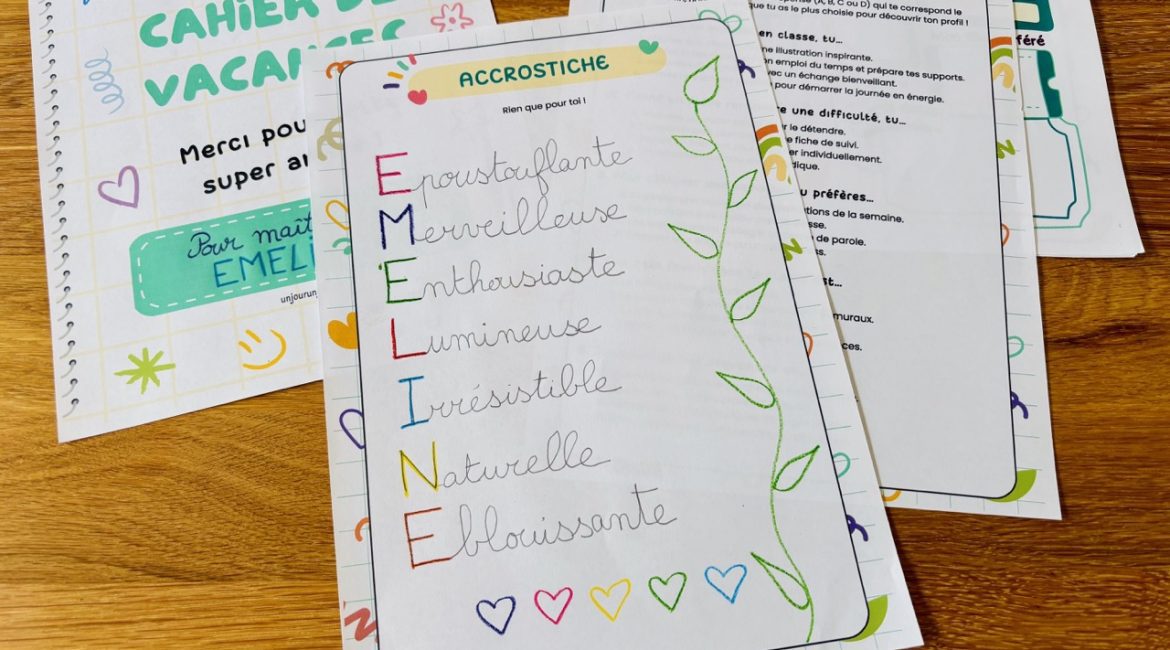 CAHIER DE
VACANCES
Merci pou
super a
Pour maît
EMELI
unjourun
ACCROSTICHE
Rien que pour toi !
Epoustouflante
Merveilleuse
Enthousiaste
Lumineuse
Irrésistible
Naturelle
Eblouissante
(A, B, C ou D) qui te correspond le
que tu as le plus choisie pour découvrir ton profil !
en classe, tu...
ne illustration inspirante.
on emploi du temps et prépare tes supports.
ec un échange bienveillant.
pour démarrer la journée en énergie.
e une difficulté, tu...
r le détendre.
e fiche de suivi.
er individuellement.
dique.
u préfères...
tions de la semaine.
sse.
de parole.
ss.
st...
muraux.
ces.
féré